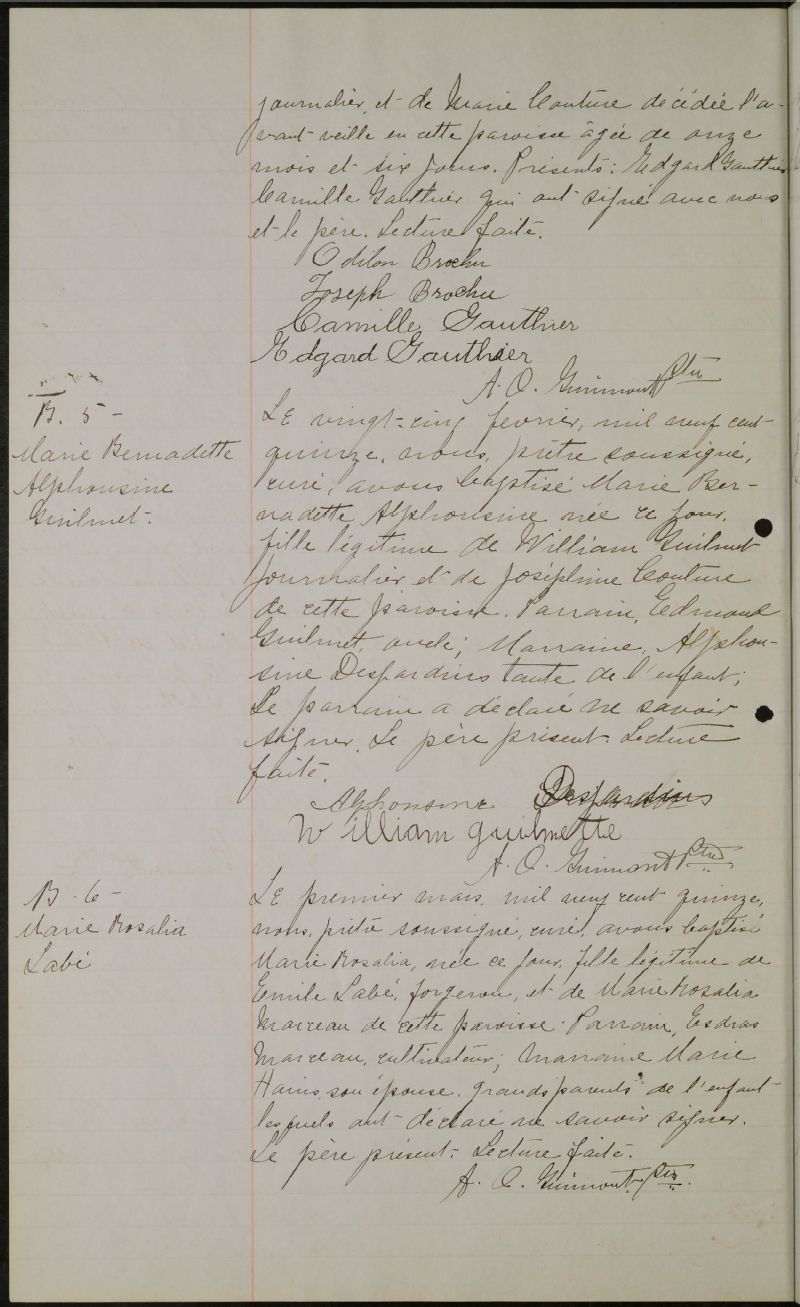 journalier, et de Marie Couture décédée l'a-
vant-veille en cette paroisse âgée de onze
mois et six jours. Présents: Edgard Gauthier
Camille Gauthier qui ont signé avec nous
et le père. Lecture faite.
Odilon Brochu
Joseph Brochu
Camille Gauthier
Edgard Gauthier
A. O. Guimont Ptre
B. 5 -
Marie Bernadette
Alphonsine
Guilmet.
Le vingt-cinq fevrier, mil neuf cent
quinze, nous, prêtre soussigné,
curé, avons baptisé Marie Ber-
nadette Alphonsine née ce jour,
fille légitime de William Guilmet
journalier et de Joséphine Couture
de cette paroisse. Parrain, Edmond
Guilmet, oncle; Marraine, Alphon-
sine Desjardins tante de l'enfant;
Le parrain a déclaré ne savoir
signer. Le père présent. Lecture
faite.
Alphonsine Desjardins
William guilmette
A. O. Guimont Ptre
B - 6 -
Marie Rosalia
Labé
Le premier mars, mil neuf cent quinze,
nous, prêtre soussigné, curé, avons baptisé
Marie Rosalia, née ce jour, fille légitime de
Emile Labé, forgeron, et de Marie Rosalia
Marceau de cette paroisse. Parrain, Esdras
Marceau, cultivateur; marraine Marie
Hains, son épouse, grands parents de l'enfant
lesquels ont déclaré ne savoir signer.
Le père présent. Lecture faite.
A. O. Guimont, Ptre.